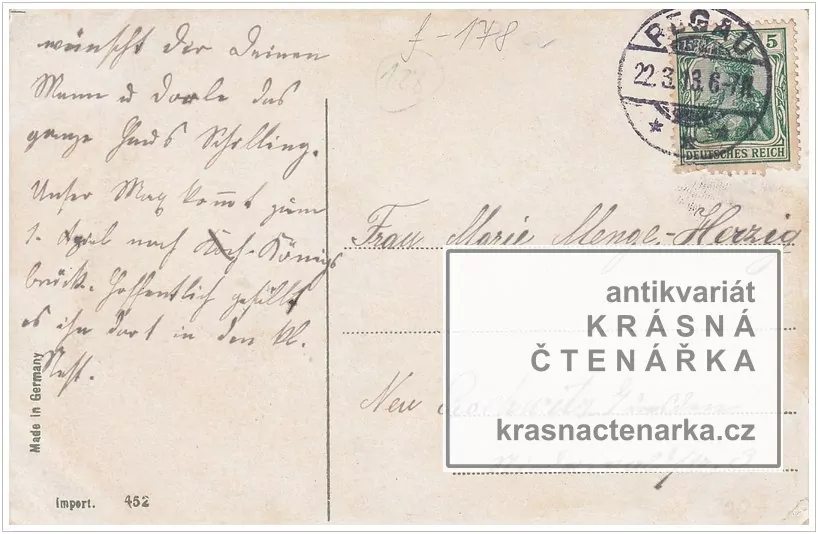 wünscht dir Deinen
Mann u dorle das
ganze Haus Schilling.
Unser Max kommt zum
1. April nach Königs
brück. Hoffentlich gefällt
es ihm dort in den kl.
Nest.
f-178
128
PEGAU
22.3.13.6-7N.
5
DEUTSCHES REICH
Frau Marie Menge-Herzig
antikvariát
KRÁSNÁ
ČTENÁŘKA
Neu
krasnactenarka.cz
Made in Germany
Import. 452